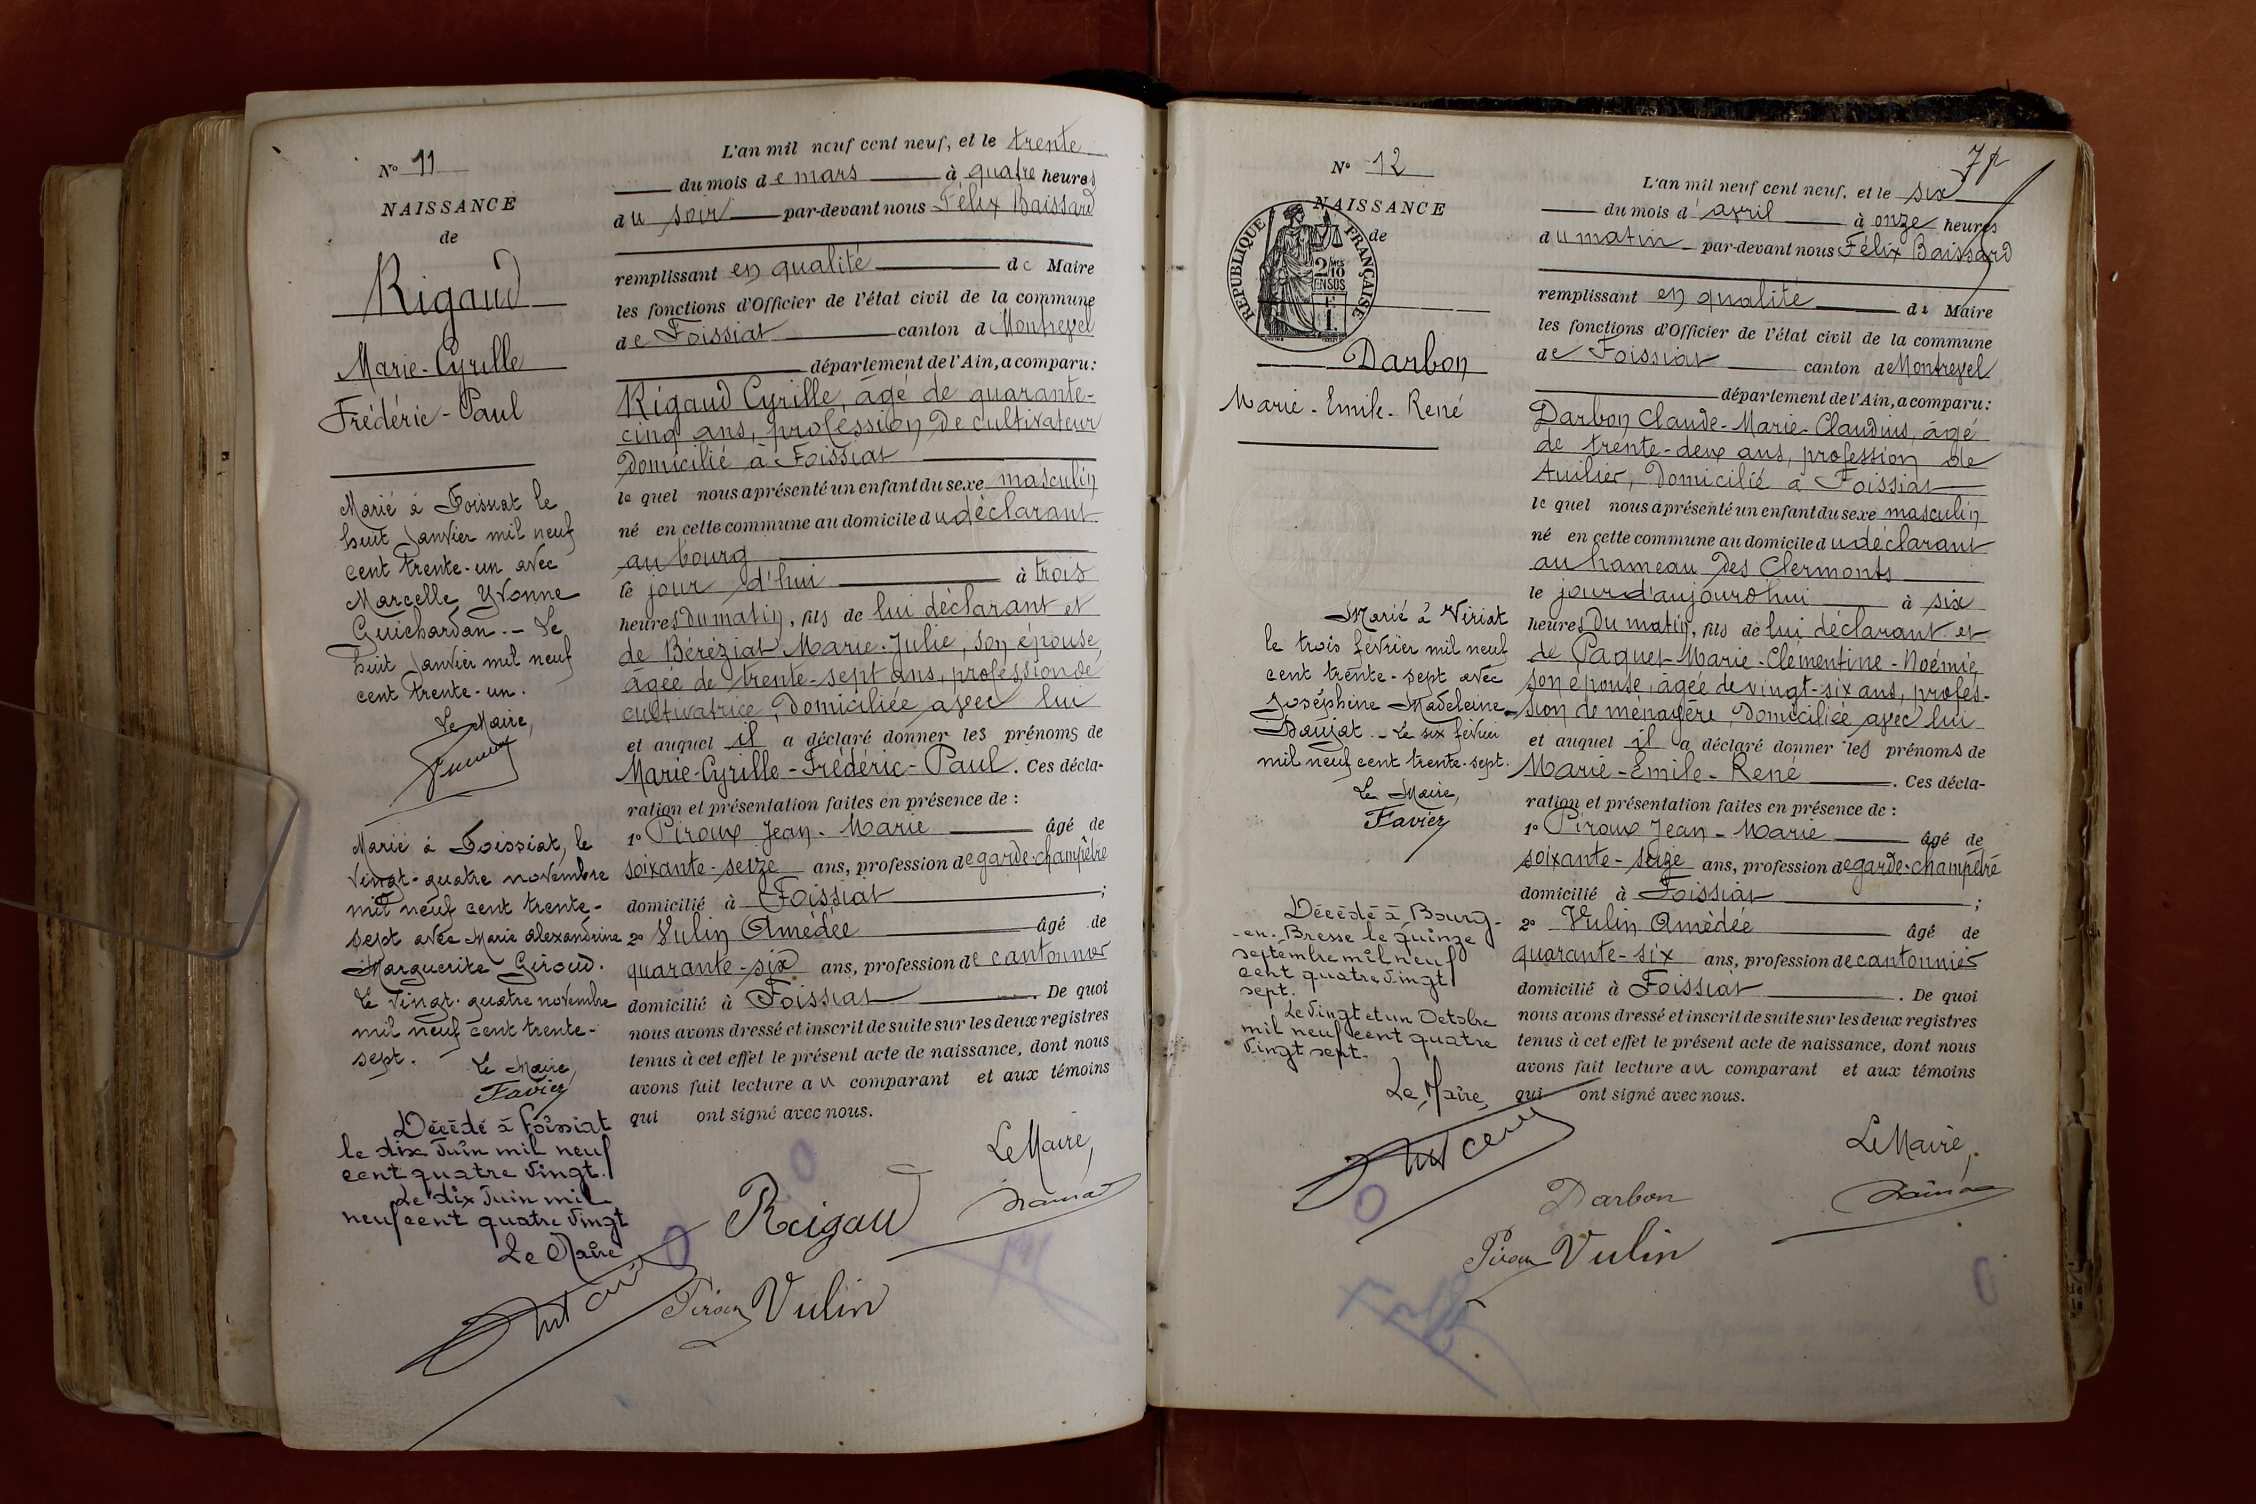 N° 11
NAISSANCE
de
Rigaud
Marie-Cyrille
Frédéric-Paul
Marié à Foissiat le
huit Janvier mil neuf
cent trente-un avec
Marcelle Yvonne
Guichardan.- Le
huit Janvier mil neuf
cent trente-un.
Le Maire,
Marié à Foissiat, le
vingt-quatre novembre
mil neuf cent trente-
sept avec Marie Alexandrine
Marguerite Giroud.
Le vingt-quatre novembre
mil neuf cent trente-
sept.
Le Maire,
Favier
Décédé à Foissiat
le dix Juin mil neuf
cent quatre vingt.
Le dix Juin mil
neuf cent quatre vingt
Le Maire
L'an mil neuf cent neuf, et le trente
du mois de mars à quatre heures
du soir par-devant nous Félix Baissard
remplissant en qualité de Maire
les fonctions d'Officier de l'état civil de la commune
de Foissiat canton de Montrevel
département de l'Ain, a comparu:
Rigaud Cyrille, âgé de quarante-
cinq ans, profession de cultivateur
domicilié à Foissiat
lequel nous a présenté un enfant du sexe masculin
né en cette commune au domicile du déclarant
au bourg
le jour d'hui à trois
heures du matin, fils de lui déclarant et
de Béréziat Marie-Julie, son épouse,
âgée de trente-sept ans, profession de
cultivatrice, domiciliée avec lui
et auquel il a déclaré donner les prénoms de
Marie-Cyrille-Frédéric-Paul. Ces décla-
ration et présentation faites en présence de :
1° Piroux Jean-Marie âgé de
soixante-seize ans, profession de garde-champêtre
domicilié à Foissiat ;
2° Vulin Amédée âgé de
quarante-six ans, profession de cantonnier
domicilié à Foissiat. De quoi
nous avons dressé et inscrit de suite sur les deux registres
tenus à cet effet le présent acte de naissance, dont nous
avons fait lecture au comparant et aux témoins
qui ont signé avec nous.
Le Maire,
Rigaud
Piroux Vulin
7
N° 12
NAISSANCE
de
RÉPUBLIQUE FRANÇAISE
2/10
EN SUS
Darbon
Marie-Emile-René
Marié à Viriat
le trois février mil neuf
cent trente-sept avec
Joséphine Madeleine
Daujat.- Le six février
mil neuf cent trente-sept.
Le Maire,
Favier
Décédé à Bourg-
-en-Bresse le quinze
septembre mil neuf
cent quatre vingt
sept.
Le vingt et un Octobre
mil neuf cent quatre
vingt sept.
Le Maire,
L'an mil neuf cent neuf, et le six
du mois d'avril à onze heures
du matin par-devant nous Félix Baissard
remplissant en qualité de Maire
les fonctions d'Officier de l'état civil de la commune
de Foissiat canton de Montrevel
département de l'Ain, a comparu:
Darbon Claude-Marie-Claudius, âgé
de trente-deux ans, profession de
tuilier, domicilié à Foissiat
lequel nous a présenté un enfant du sexe masculin
né en cette commune au domicile du déclarant
au hameau des Clermonts
le jour d'aujourd'hui à six
heures du matin, fils de lui déclarant et
de Paquet Marie-Clémentine-Noémie,
son épouse, âgée de vingt-six ans, profes-
sion de ménagère, domiciliée avec lui
et auquel il a déclaré donner les prénoms de
Marie-Emile-René. Ces décla-
ration et présentation faites en présence de :
1° Piroux Jean-Marie âgé de
soixante-seize ans, profession de garde-champêtre
domicilié à Foissiat ;
2° Vulin Amédée âgé de
quarante-six ans, profession de cantonnier
domicilié à Foissiat. De quoi
nous avons dressé et inscrit de suite sur les deux registres
tenus à cet effet le présent acte de naissance, dont nous
avons fait lecture au comparant et aux témoins
qui ont signé avec nous.
Le Maire,
Darbon
Piroux Vulin